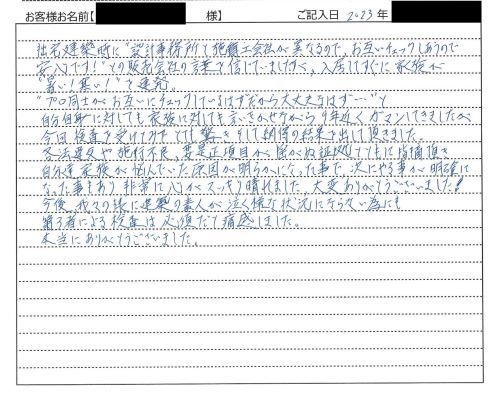 お客様お名前【 様】 ご記入日 2023年
住宅建築時に"設計事務所と施工会社が異なるので、お互いチェックしあうので
安心です!"との販売会社の言葉を信じていましたが、入居してすぐに家族が
"暑い!寒い!"で連発。
"プロ同士がお互いにチェックしているはずだから大丈夫なはず…"と
自分自身に対しても家族に対しても言いきかせながら 年近くガマンしてきましたが
今回検査を受けてみて とても驚き そして納得の結果を出して頂きました。
各法違反や施行不良、要是正項目が 証拠とともに指摘頂き
自分達家族が悩んでいた原因が明らかになった事で、次にやる事が明確に
なった事もあり 非常に心がスッキリ晴れました。大変ありがとうございました!
今後、我々の様に建築の素人が泣く様な状況にならない為にも
第3者による検査は必須だと痛感しました。
本当にありがとうございました。